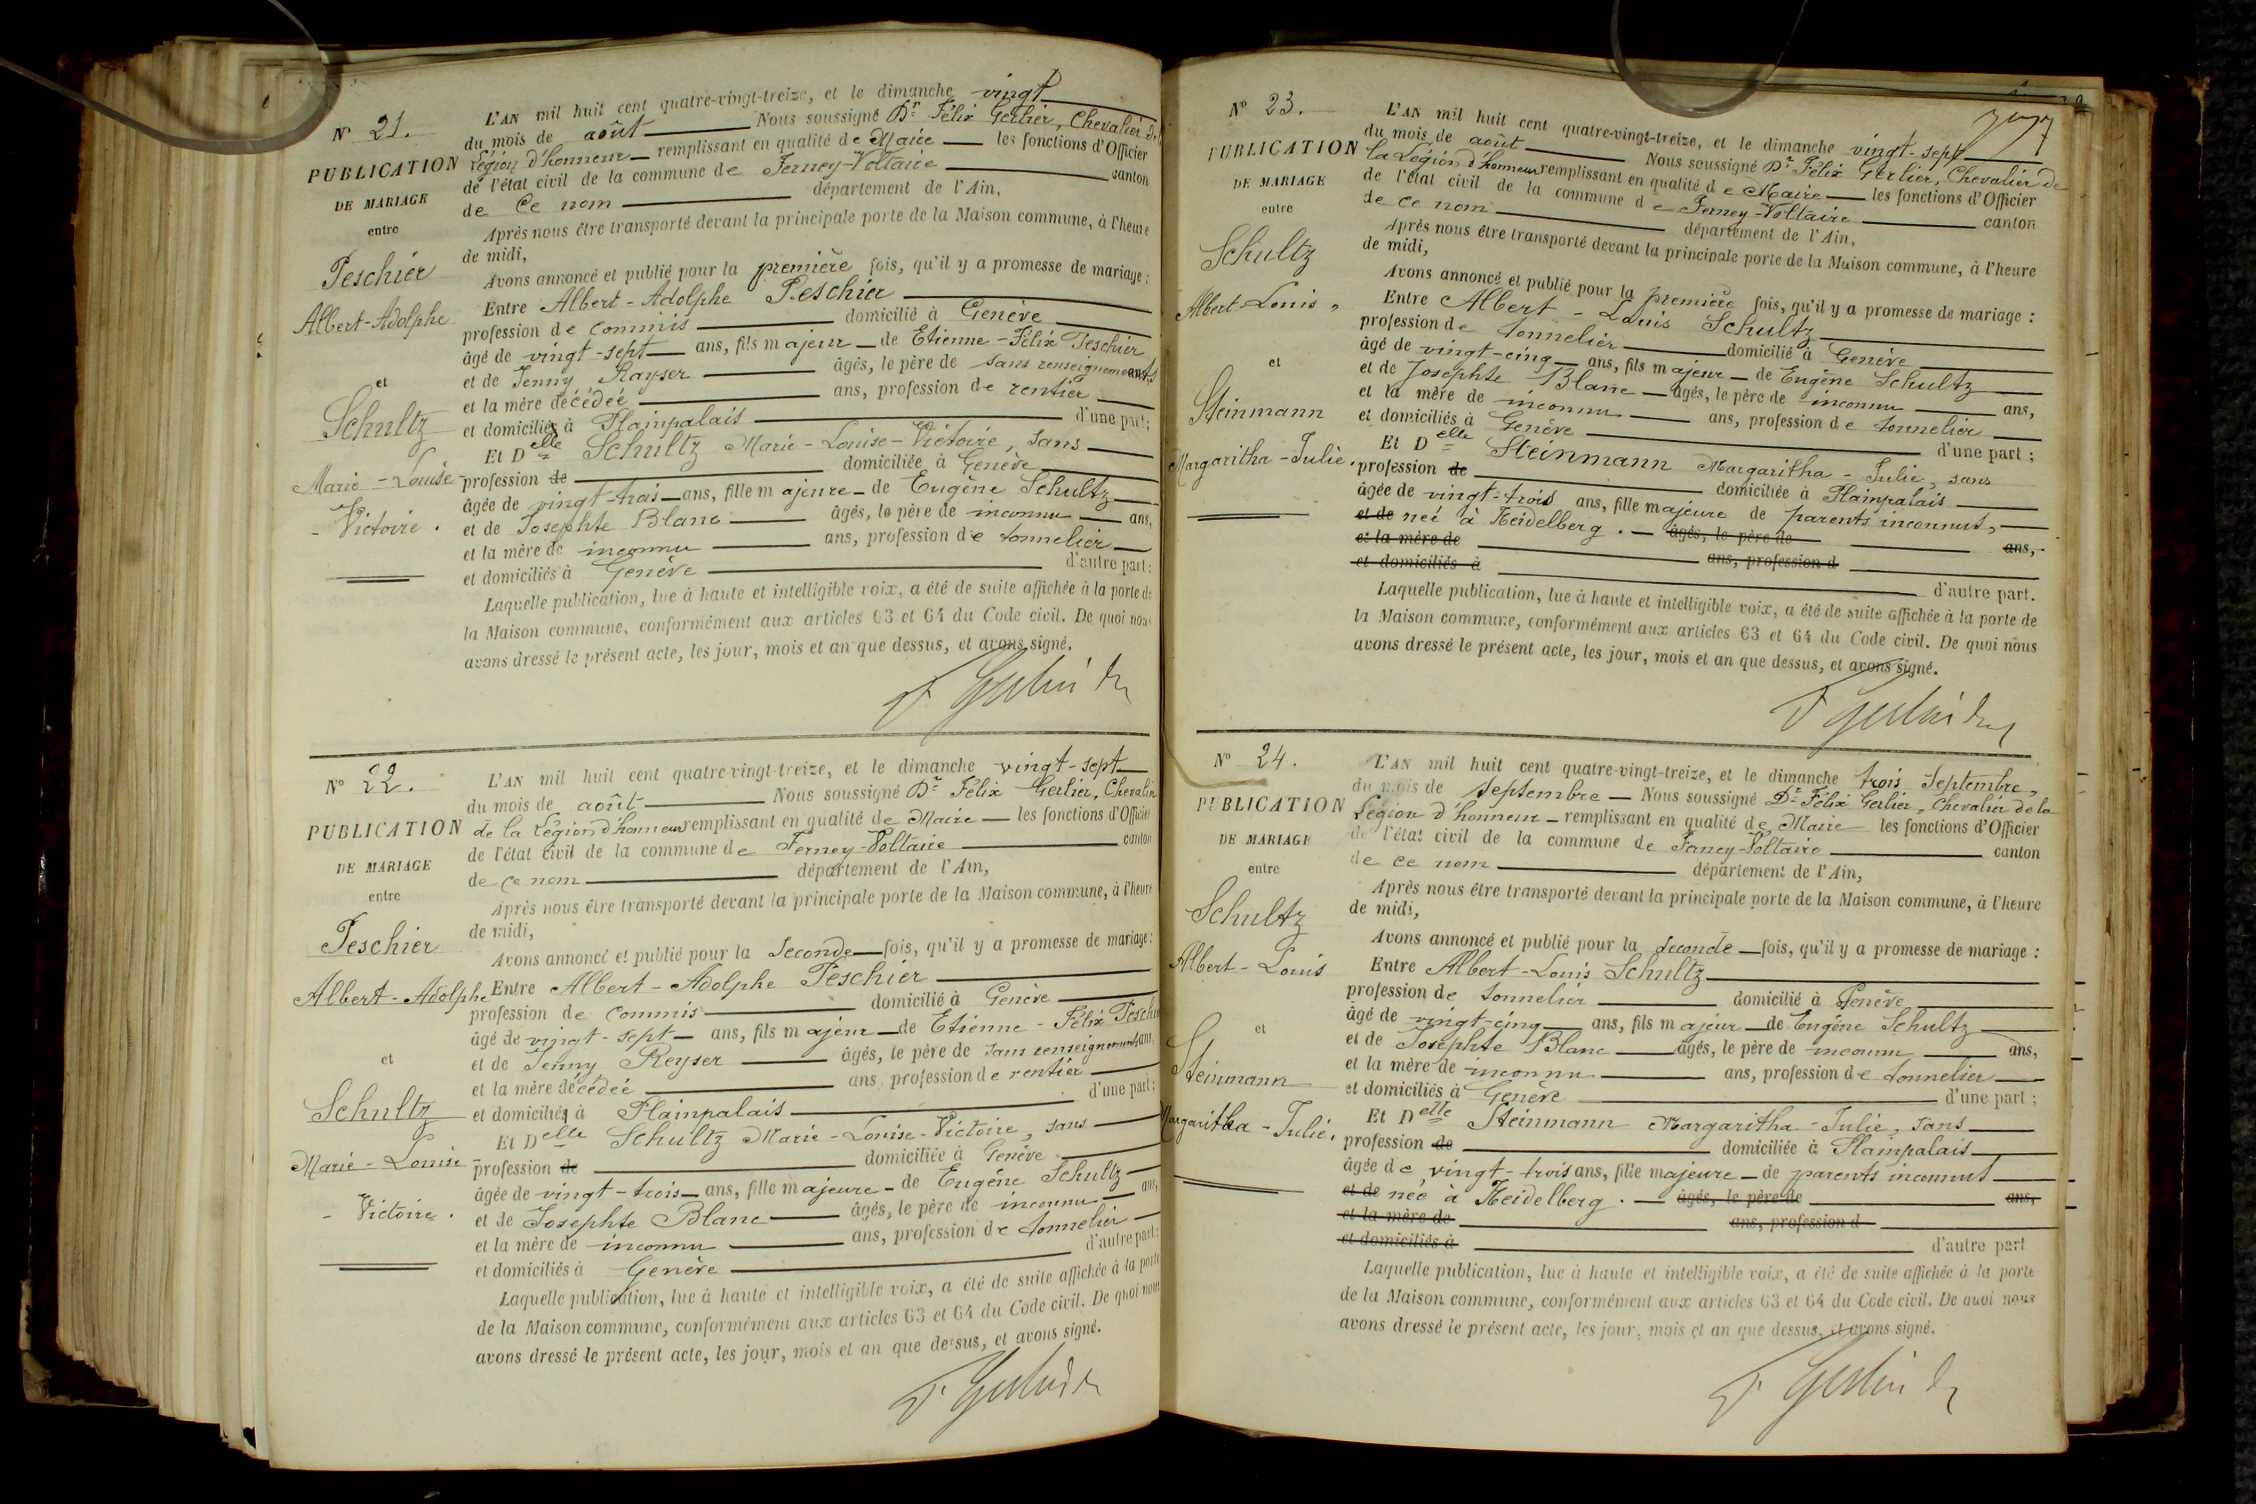 N° 21.
PUBLICATION
DE MARIAGE
entre
Peschier
Albert-Adolphe
et
Schultz
Marie-Louise-
-Victoire.
L'AN mil huit cent quatre-vingt-treize, et le dimanche vingt
du mois de août Nous soussigné Dr Félix Gerlier, Chevalier de la
Légion d'honneur remplissant en qualité de Maire les fonctions d'Officier
de l'état civil de la commune de Ferney-Voltaire canton
de Ce nom département de l'Ain,
Après nous être transporté devant la principale porte de la Maison commune, à l'heure
de midi,
Avons annoncé et publié pour la première fois, qu'il y a promesse de mariage :
Entre Albert-Adolphe Peschier
profession de commis domicilié à Genève
âgé de vingt-sept ans, fils majeur de Etienne-Félix Peschier
et de Jenny Rayser âgés, le père de sans renseignements ans,
et la mère décédée ans, profession de rentier
et domiciliés à Plainpalais d'une part;
Et Delle Schultz Marie-Louise-Victoire, sans
profession de domiciliée à Genève
âgée de vingt-trois ans, fille majeure de Eugène Schultz
et de Josephte Blanc âgés, le père de inconnu ans,
et la mère de inconnu ans, profession de tonnelier
et domiciliés à Genève d'autre part;
Laquelle publication, lue à haute et intelligible voix, a été de suite affichée à la porte de
la Maison commune, conformément aux articles 63 et 64 du Code civil. De quoi nous
avons dressé le présent acte, les jour, mois et an que dessus, et avons signé.
F Gerlier Dr
N° 22.
PUBLICATION
DE MARIAGE
entre
Peschier
Albert-Adolphe
et
Schultz
Marie-Louise-
-Victoire.
L'AN mil huit cent quatre-vingt-treize, et le dimanche vingt-sept
du mois de août Nous soussigné Dr Félix Gerlier, Chevalier
de la Légion d'honneur remplissant en qualité de Maire les fonctions d'Officier
de l'état civil de la commune de Ferney-Voltaire canton
de ce nom département de l'Ain,
Après nous être transporté devant la principale porte de la Maison commune, à l'heure
de midi,
Avons annoncé et publié pour la Seconde fois, qu'il y a promesse de mariage :
Entre Albert-Adolphe Peschier
profession de commis domicilié à Genève
âgé de vingt-sept ans, fils majeur de Etienne-Félix Peschier
et de Jenny Reyser âgés, le père de sans renseignements ans,
et la mère décédée ans, profession de rentier
et domiciliés à Plainpalais d'une part;
Et Delle Schultz Marie-Louise-Victoire, sans
profession de domiciliée à Genève
âgée de vingt-trois ans, fille majeure de Eugène Schultz
et de Josephte Blanc âgés, le père de inconnu ans,
et la mère de inconnu ans, profession de tonnelier
et domiciliés à Genève d'autre part;
Laquelle publication, lue à haute et intelligible voix, a été de suite affichée à la porte
de la Maison commune, conformément aux articles 63 et 64 du Code civil. De quoi nous
avons dressé le présent acte, les jour, mois et an que dessus, et avons signé.
F. Gerlier Dr
N° 23.
PUBLICATION
DE MARIAGE
entre
Schultz
Albert-Louis,
et
Steinmann
Margaritha-Julie.
L'AN mil huit cent quatre-vingt-treize, et le dimanche vingt-sept
du mois de août Nous soussigné Dr Félix Gerlier, Chevalier de
la Légion d'honneur remplissant en qualité de Maire les fonctions d'Officier
de l'état civil de la commune de Ferney-Voltaire canton
de ce nom département de l'Ain,
Après nous être transporté devant la principale porte de la Maison commune, à l'heure
de midi,
Avons annoncé et publié pour la première fois, qu'il y a promesse de mariage :
Entre Albert-Louis Schultz
profession de tonnelier domicilié à Genève
âgé de vingt-cinq ans, fils majeur de Eugène Schultz
et de Josephte Blanc âgés, le père de inconnu ans,
et la mère de inconnu ans, profession de tonnelier
et domiciliés à Genève d'une part ;
Et Delle Steinmann Margaritha-Julie, sans
profession de domiciliée à Plainpalais
âgée de vingt-trois ans, fille majeure de parents inconnus,
et de née à Heidelberg. âgés, le père de ans,
et la mère de ans, profession d
et domiciliés à d'autre part.
Laquelle publication, lue à haute et intelligible voix, a été de suite affichée à la porte de
la Maison commune, conformément aux articles 63 et 64 du Code civil. De quoi nous
avons dressé le présent acte, les jour, mois et an que dessus, et avons signé.
F Gerlier Dr
N° 24.
PUBLICATION
DE MARIAGE
entre
Schultz
Albert-Louis
et
Steinmann
Margaritha-Julie.
L'AN mil huit cent quatre-vingt-treize, et le dimanche trois Septembre,
du mois de Septembre Nous soussigné Dr Félix Gerlier, Chevalier de la
Légion d'honneur remplissant en qualité de Maire les fonctions d'Officier
de l'état civil de la commune de Ferney-Voltaire canton
de ce nom département de l'Ain,
Après nous être transporté devant la principale porte de la Maison commune, à l'heure
de midi,
Avons annoncé et publié pour la seconde fois, qu'il y a promesse de mariage :
Entre Albert-Louis Schultz
profession de tonnelier domicilié à Genève
âgé de vingt-cinq ans, fils majeur de Eugène Schultz
et de Josephte Blanc âgés, le père de inconnu ans,
et la mère de inconnu ans, profession de tonnelier
et domiciliés à Genève d'une part ;
Et Delle Steinmann Margaritha-Julie, sans
profession de domiciliée à Plainpalais
âgée de vingt-trois ans, fille majeure de parents inconnus
et de née à Heidelberg. âgés, le père de ans,
et la mère de ans, profession d
et domiciliés à d'autre part
Laquelle publication, lue à haute et intelligible voix, a été de suite affichée à la porte
de la Maison commune, conformément aux articles 63 et 64 du Code civil. De quoi nous
avons dressé le présent acte, les jour, mois et an que dessus, et avons signé.
F. Gerlier Dr